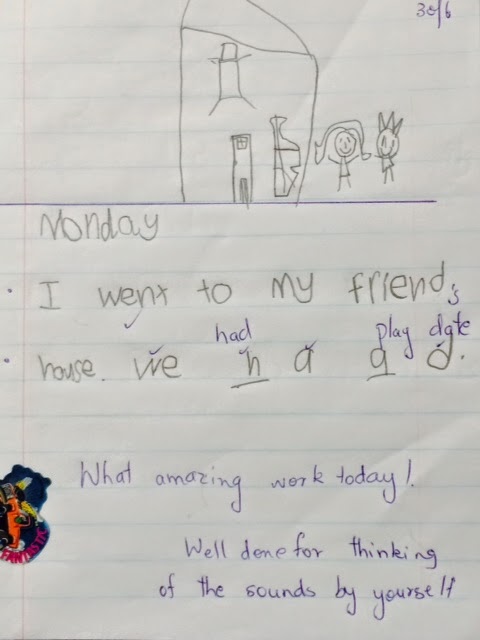 30/6
Monday
I went to my friend's
had play date
house. We h a a d.
What amazing work today!
FANTASTIC
Well done for thinking
of the sounds by yourself